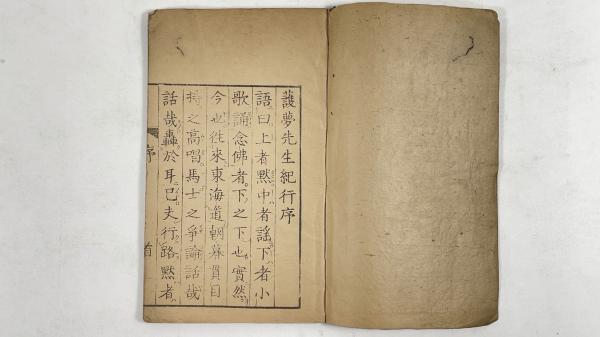 護夢先生紀行序
語曰上者黙中者謡下者小
歌誦念佛者下之下也實然
今也徃來東海道朝暮貫目
持之高唱馬士之爭論話哉
話哉轟於耳已夫行路黙者
序
首